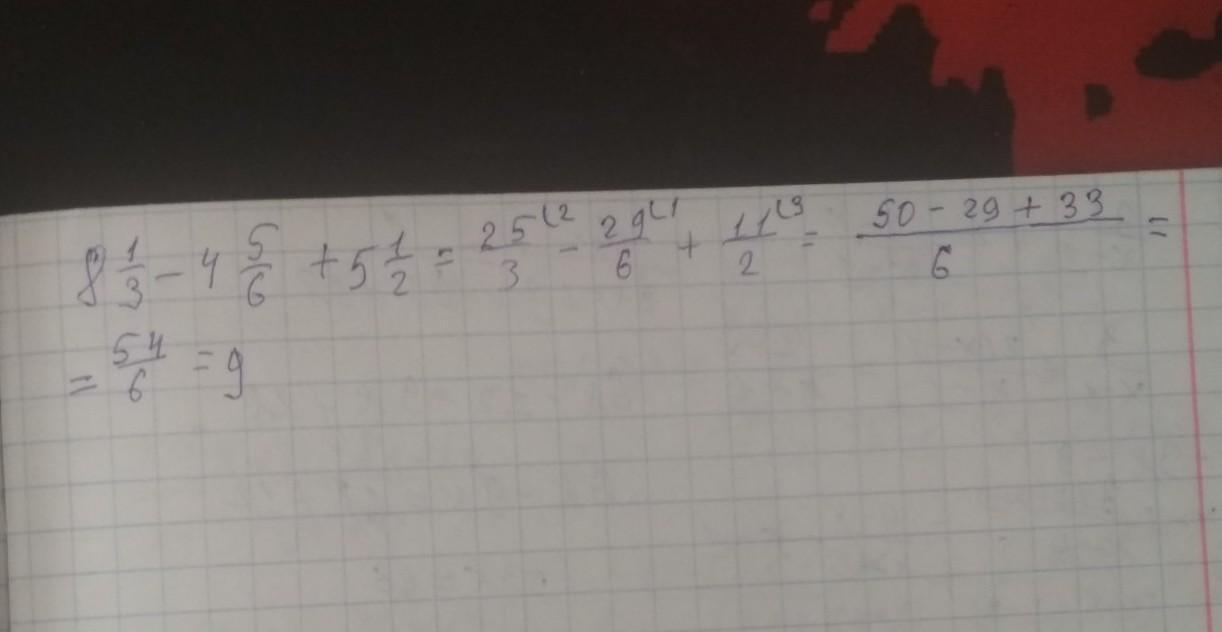 8 1/3 - 4 5/6 + 5 1/2 = 25/3 (2 - 29/6 (1 + 11/2 (3 = (50 - 29 + 33)/6 =
= 54/6 = 9